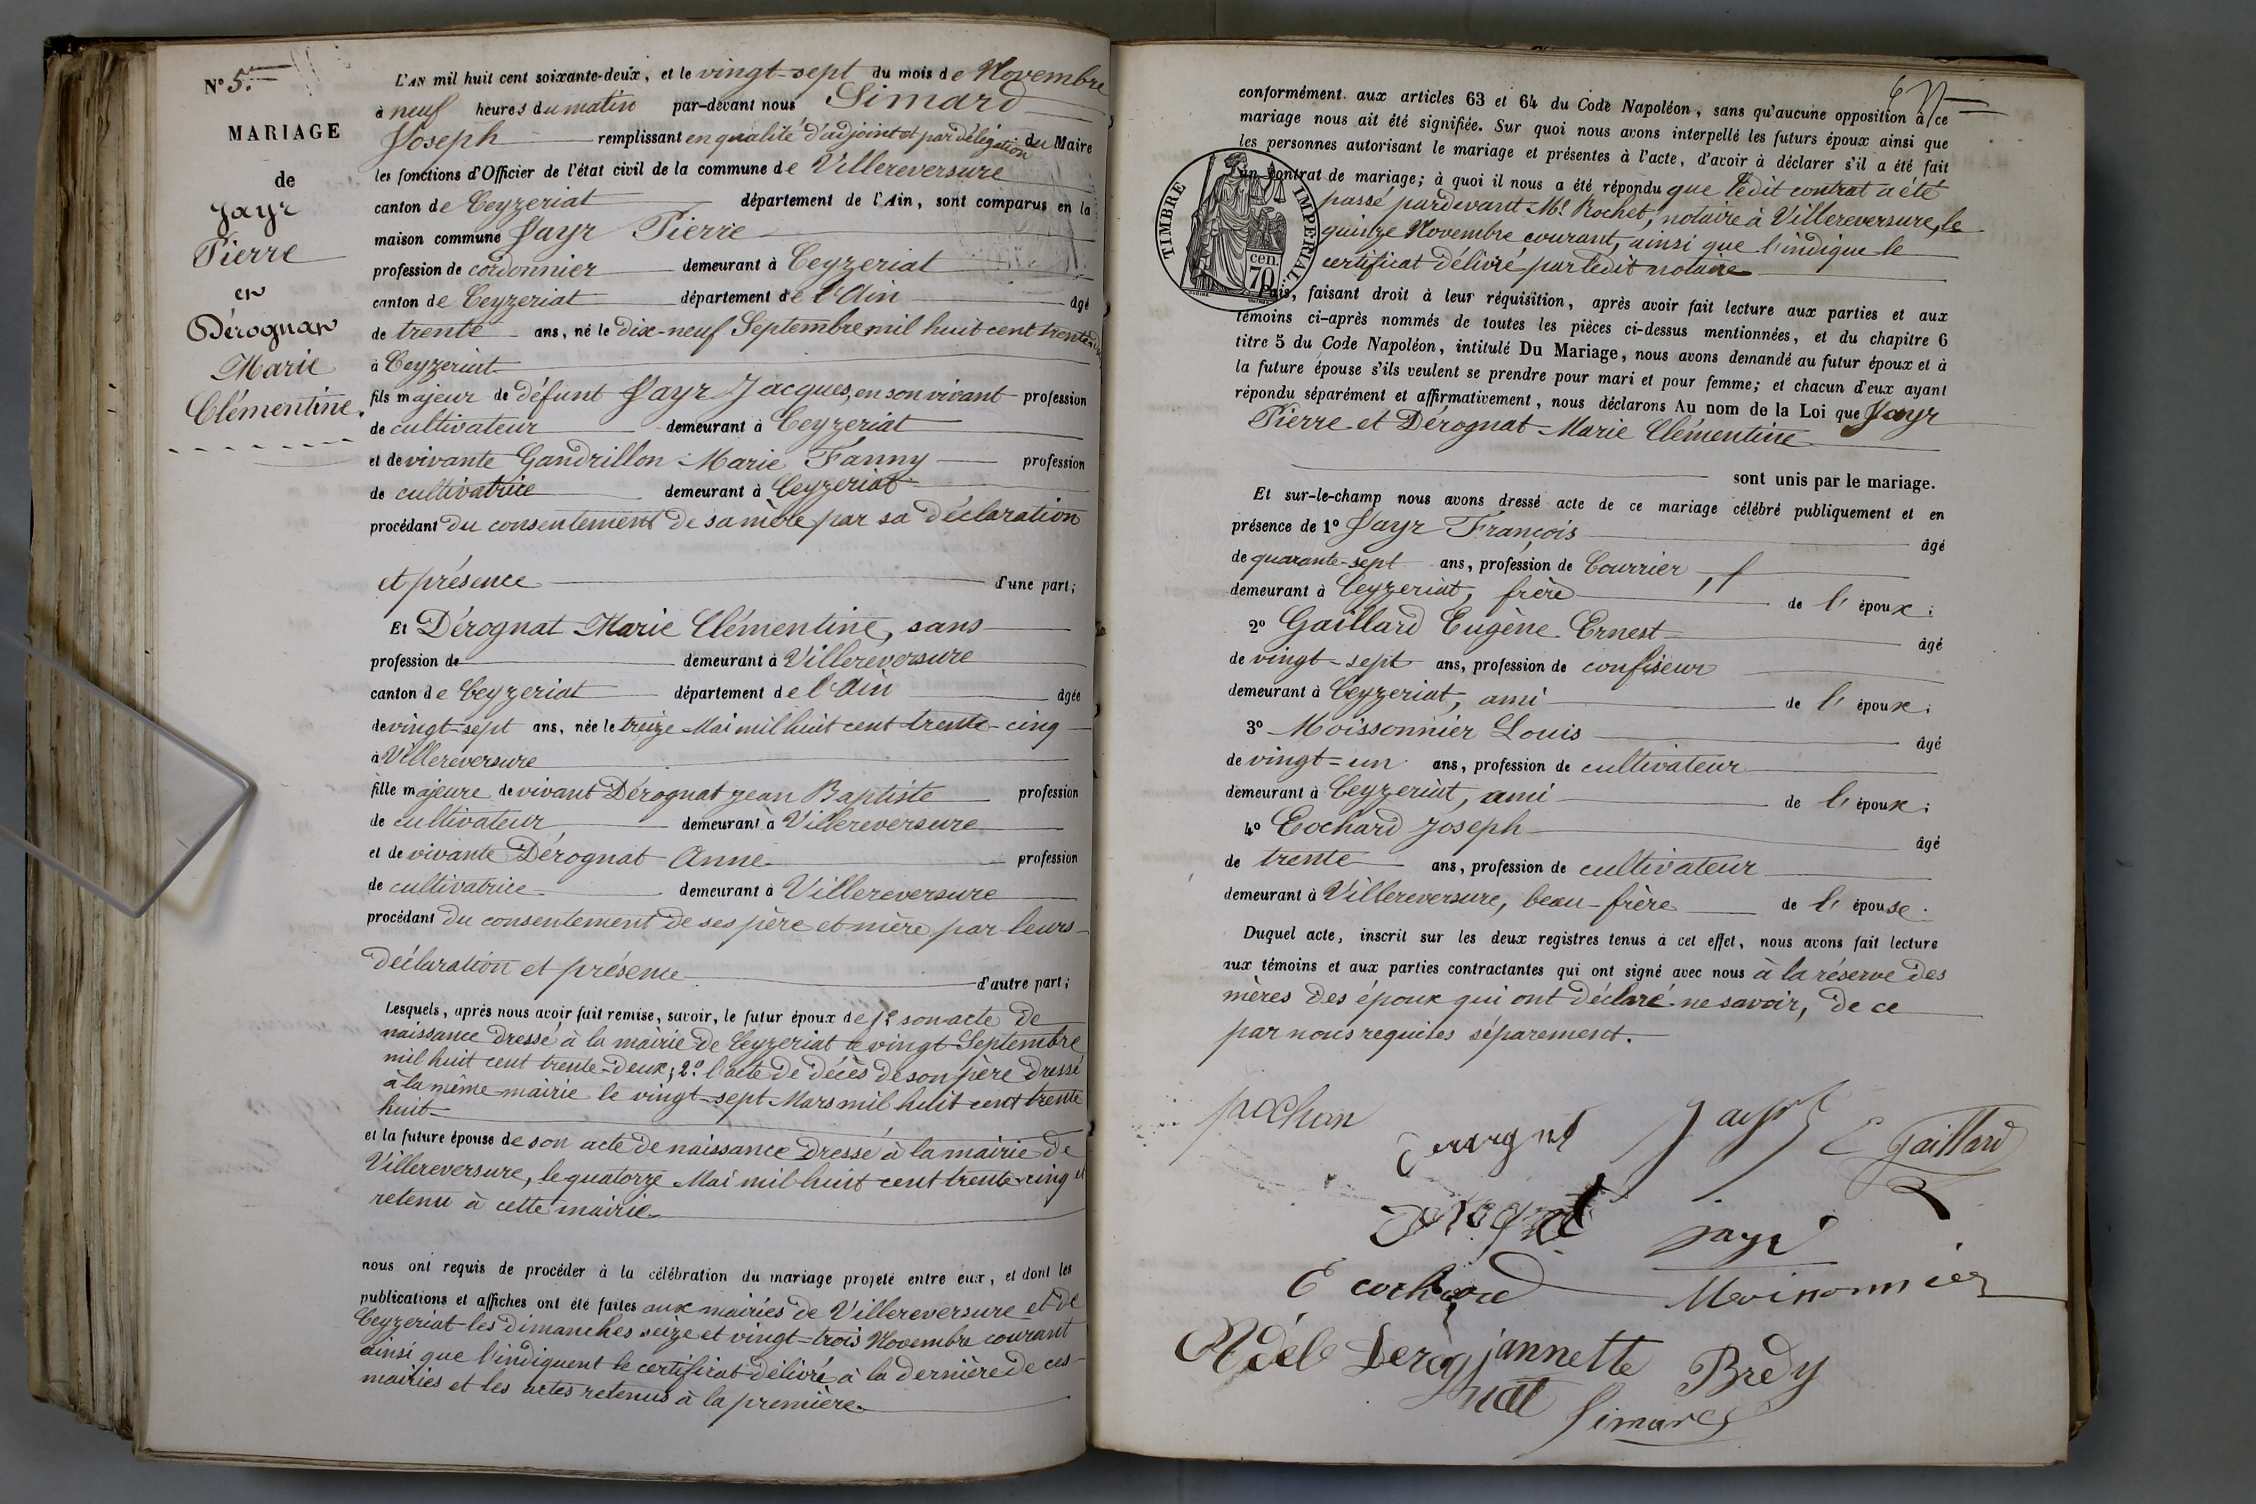 N° 5.
MARIAGE
de
Jayr
Pierre
en
Dérognat
Marie
Clémentine.
L'AN mil huit cent soixante-deux, et le vingt-sept du mois de Novembre
à neuf heures du matin par-devant nous Simard
Joseph remplissant en qualité d'adjoint et par délégation du Maire
les fonctions d'Officier de l'état civil de la commune de Villereversure
canton de Ceyzeriat département de l'Ain, sont comparus en la
maison commune Jayr Pierre
profession de cordonnier demeurant à Ceyzeriat
canton de Ceyzeriat département de l'Ain âgé
de trente ans, né le dix-neuf Septembre mil huit cent trente-deux
à Ceyzeriat
fils majeur de défunt Jayr Jacques, en son vivant profession
de cultivateur demeurant à Ceyzeriat
et de vivante Gandrillon Marie Fanny profession
de cultivatrice demeurant à Ceyzeriat
procédant du consentement de sa mère par sa déclaration
et présence d'une part;
Et Dérognat Marie Clémentine, sans
profession de demeurant à Villereversure
canton de Ceyzeriat département de l'Ain âgée
de vingt-sept ans, née le treize Mai mil huit cent trente-cinq
à Villereversure
fille majeure de vivant Dérognat jean Baptiste profession
de cultivateur demeurant à Villereversure
et de vivante Dérognat Anne profession
de cultivatrice demeurant à Villereversure
procédant du consentement de ses père et mère par leurs
déclaration et présence d'autre part;
Lesquels, après nous avoir fait remise, savoir, le futur époux de 1° son acte de
naissance dressé à la mairie de Ceyzeriat le vingt Septembre
mil huit cent trente-deux; 2° l'acte de décès de son père dressé
à la même mairie le vingt-sept Mars mil huit cent trente
huit
et la future épouse de son acte de naissance dressé à la mairie de
Villereversure, le quatorze Mai mil huit cent trente-cinq et
retenu à cette mairie
nous ont requis de procéder à la célébration du mariage projeté entre eux, et dont les
publications et affiches ont été faites aux mairies de Villereversure et de
Ceyzeriat les dimanches seize et vingt-trois Novembre courant
ainsi que l'indiquent le certificat délivré à la dernière de ces
mairies et les actes retenus à la première.
conformément aux articles 63 et 64 du Code Napoléon, sans qu'aucune opposition à ce
mariage nous ait été signifiée. Sur quoi nous avons interpellé les futurs époux ainsi que
les personnes autorisant le mariage et présentes à l'acte, d'avoir à déclarer s'il a été fait
un contrat de mariage; à quoi il nous a été répondu que ledit contrat a été
passé pardevant Me Rochet, notaire à Villereversure, le
quinze Novembre courant, ainsi que l'indique le
certificat délivré par ledit notaire
TIMBRE IMPÉRIAL
70 cen.
Puis, faisant droit à leur réquisition, après avoir fait lecture aux parties et aux
témoins ci-après nommés de toutes les pièces ci-dessus mentionnées, et du chapitre 6
titre 5 du Code Napoléon, intitulé Du Mariage, nous avons demandé au futur époux et à
la future épouse s'ils veulent se prendre pour mari et pour femme; et chacun d'eux ayant
répondu séparément et affirmativement, nous déclarons Au nom de la Loi que Jayr
Pierre et Dérognat Marie Clémentine
sont unis par le mariage.
Et sur-le-champ nous avons dressé acte de ce mariage célébré publiquement et en
présence de 1° Jayr François âgé
de quarante-sept ans, profession de Courrier
demeurant à Ceyzeriat, frère de l'époux;
2° Gaillard Eugène Ernest âgé
de vingt-sept ans, profession de confiseur
demeurant à Ceyzeriat, ami de l'époux;
3° Moissonnier Louis âgé
de vingt-un ans, profession de cultivateur
demeurant à Ceyzeriat, ami de l'époux;
4° Cochard Joseph âgé
de trente ans, profession de cultivateur
demeurant à Villereversure, beau-frère de l'épouse.
Duquel acte, inscrit sur les deux registres tenus à cet effet, nous avons fait lecture
aux témoins et aux parties contractantes qui ont signé avec nous à la réserve des
mères des époux qui ont déclaré ne savoir, de ce
par nous requises séparement.
Jayr E Gaillard
jayr
Cochard Moissonnier
Adèle Derognat jannette Bredy
Simard